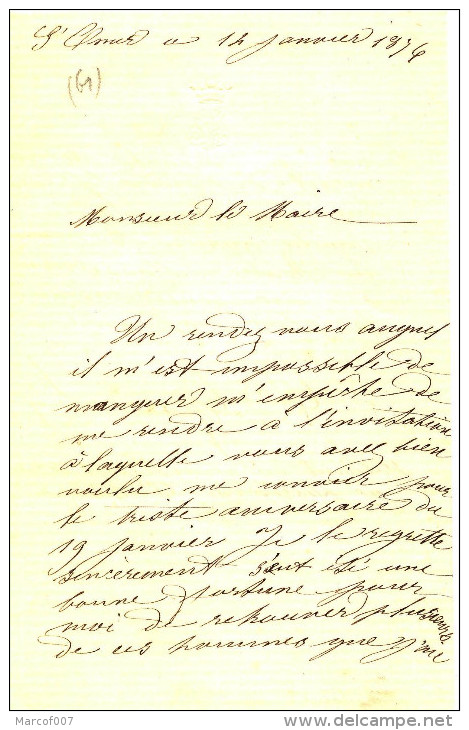 St Omer le 14 janvier 1876
(61)
Monsieur le Maire
Un rendez vous auquel
il m'est impossible de
manquer m'empêche de
me rendre à l'invitation
à laquelle vous avez bien
voulu me convier pour
le triste aniversaire du
19 janvier Je le regrette
sincèrement s'eut été une
bonne fortune pour
moi de retrouver plusieurs
de ces hommes que j'ai
Marcof007
delcampe.net